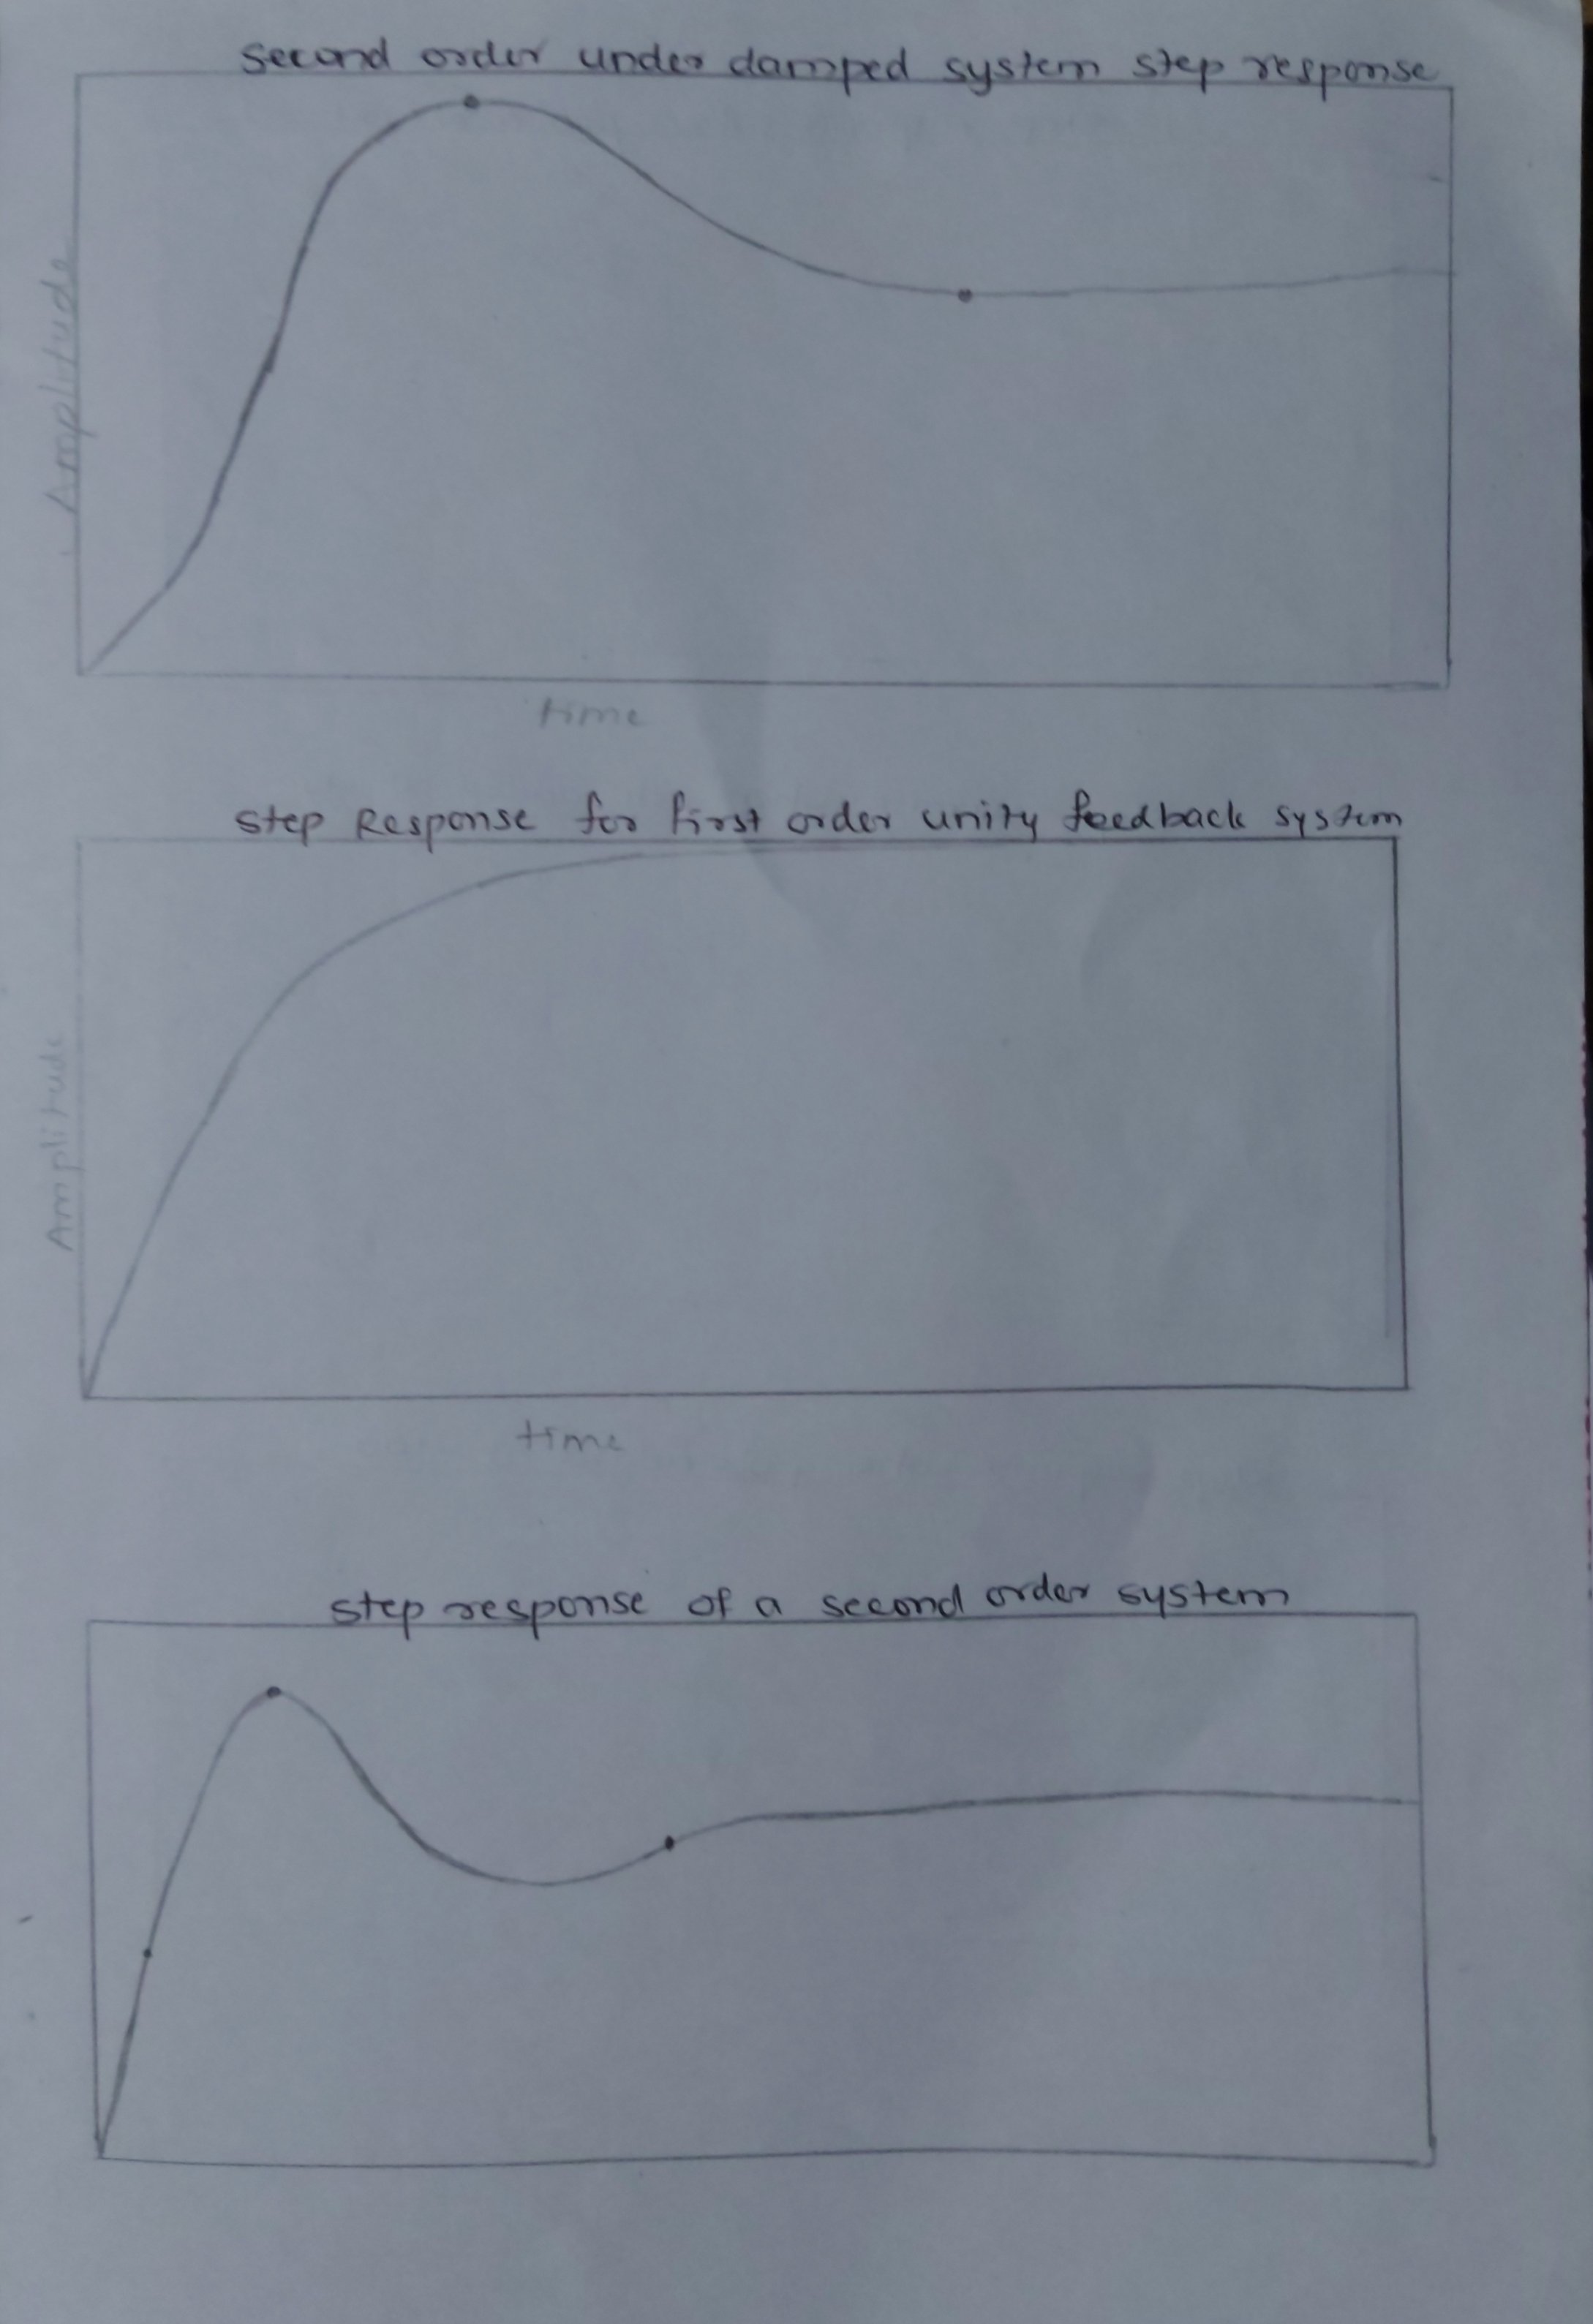 second order under damped system step response
Amplitude
time
step Response for first order unity feedback system
Amplitude
time
step response of a second order system